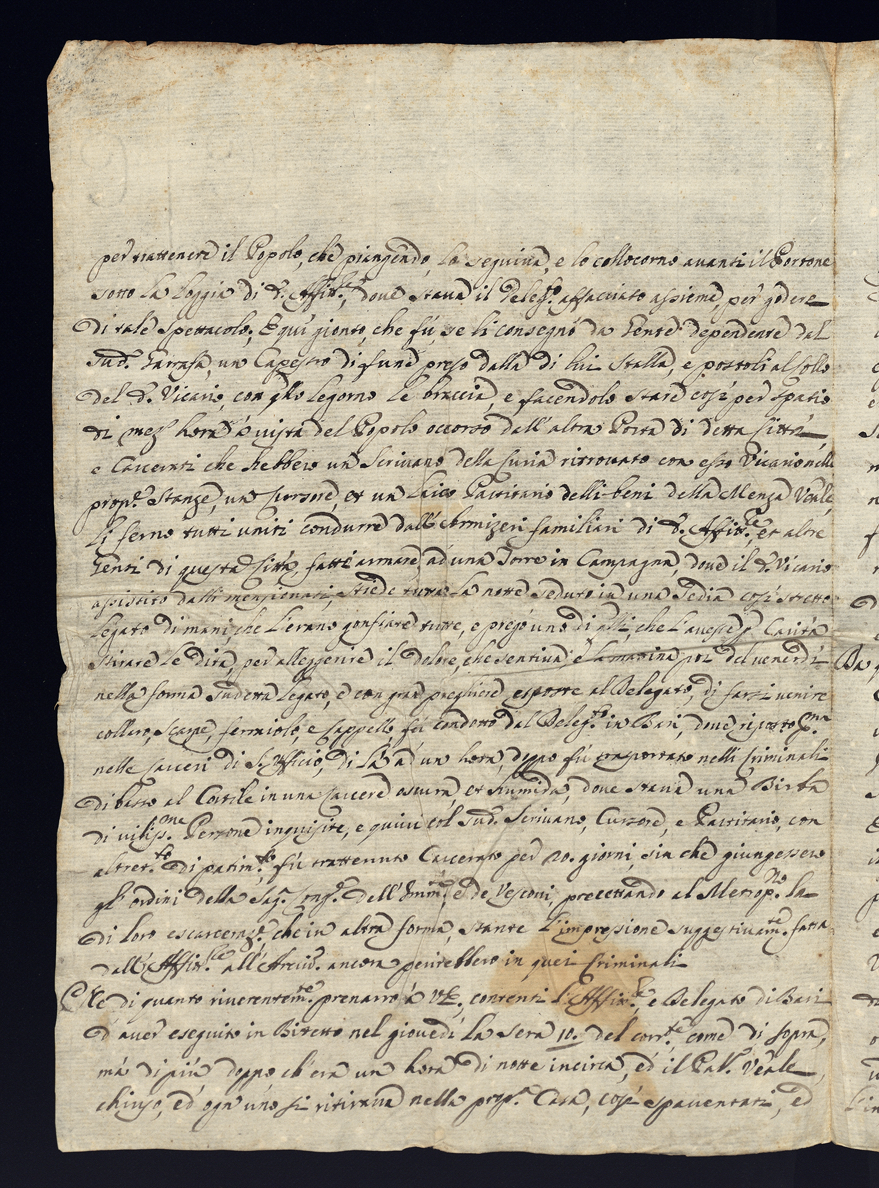 per trattenere il Popolo, che piangendo, lo seguiva, e lo collocorno avanti il Portone
sotto la Loggia di d. Affitt.re, dove stava il Deleg.to affacciato assieme, per godere
di tale spettacolo, E qui gionto, che fù, se li consegnò da Gente dependente dal
sud.o un Capestro di fune preso dalla di lui stalla, e postoli al collo
del d.o Vicario, con q.llo legorno le braccia, e facendolo stare così per spatio
di mez' hora à vista del Popolo accorso dall'altra Porta di detta Città
e Carcerati che hebbero un Scrivano della Curia ritrovato con esso Vicario nelle
prop.e Stanze, un Cursore, et un Laico delli beni della Menza V.le
li ferno tutti uniti condurre dall'Armizeri familiari di d.o Affitt.re, et altre
Genti di questa Città fatti armare, ad una Torre in Campagna, dove il d.o Vicario
assistito dalli menzionati, stiede tutta la notte seduto in una Sedia così stretto
legato di mani che l'erano gonfiate tutte, e pregò uno di essi, che l'avesse p Carità
stirare le dita, per alleggerire il dolore, che sentiva, e la matina poi del venerdì
nella forma sudetta legato, e con gran preghiere esposte al Delegato, di farsi venire
collaro, scarpe, ferraiolo, e Cappello, fù condotto dal Deleg.to in Bari, dove riposto p.ma
nelle Carceri di S. Officio, di là ad un hora, doppo fù trasportato nelli Criminali
di basso al Cortile in una Carcere oscura et humida, dove stava una
di viliss.me Persone inquisite, e quivi col sud.o Scrivano, Cursore, e con
altret.to di patim.to fù trattenuto Carcerato per 20. giorni, sin che giungessero
gl'ordini della Sag. Cong.e dell'Emm.i e de Vescovi, precettando al Metrop.no la
di loro escarceraz.e, che in altra forma, stante l'impressione suggestivam.te fatta
dall'Affitt.re all'Arciv.o ancora penirebbero in quei Criminali
E di quanto riverentem.te prenarro à V.E., contenti l'Affitt.re e Delegato di Bari
d'aver eseguito in Bitetto nel giovedì la sera 10. del corr.te come di sopra,
mà di più doppo ch'era un hora di notte incirca, ed il Pal.o V.le
chiuso, ed ogn'uno si ritirava nella prop.a Casa, così spaventati, ed